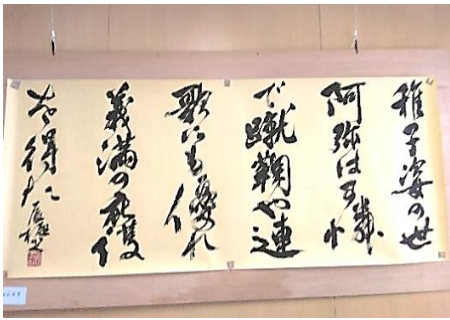 稚子姿の世
阿弥は可憐
で蹴鞠や連
歌にも優れ
義満の庇護
を得た